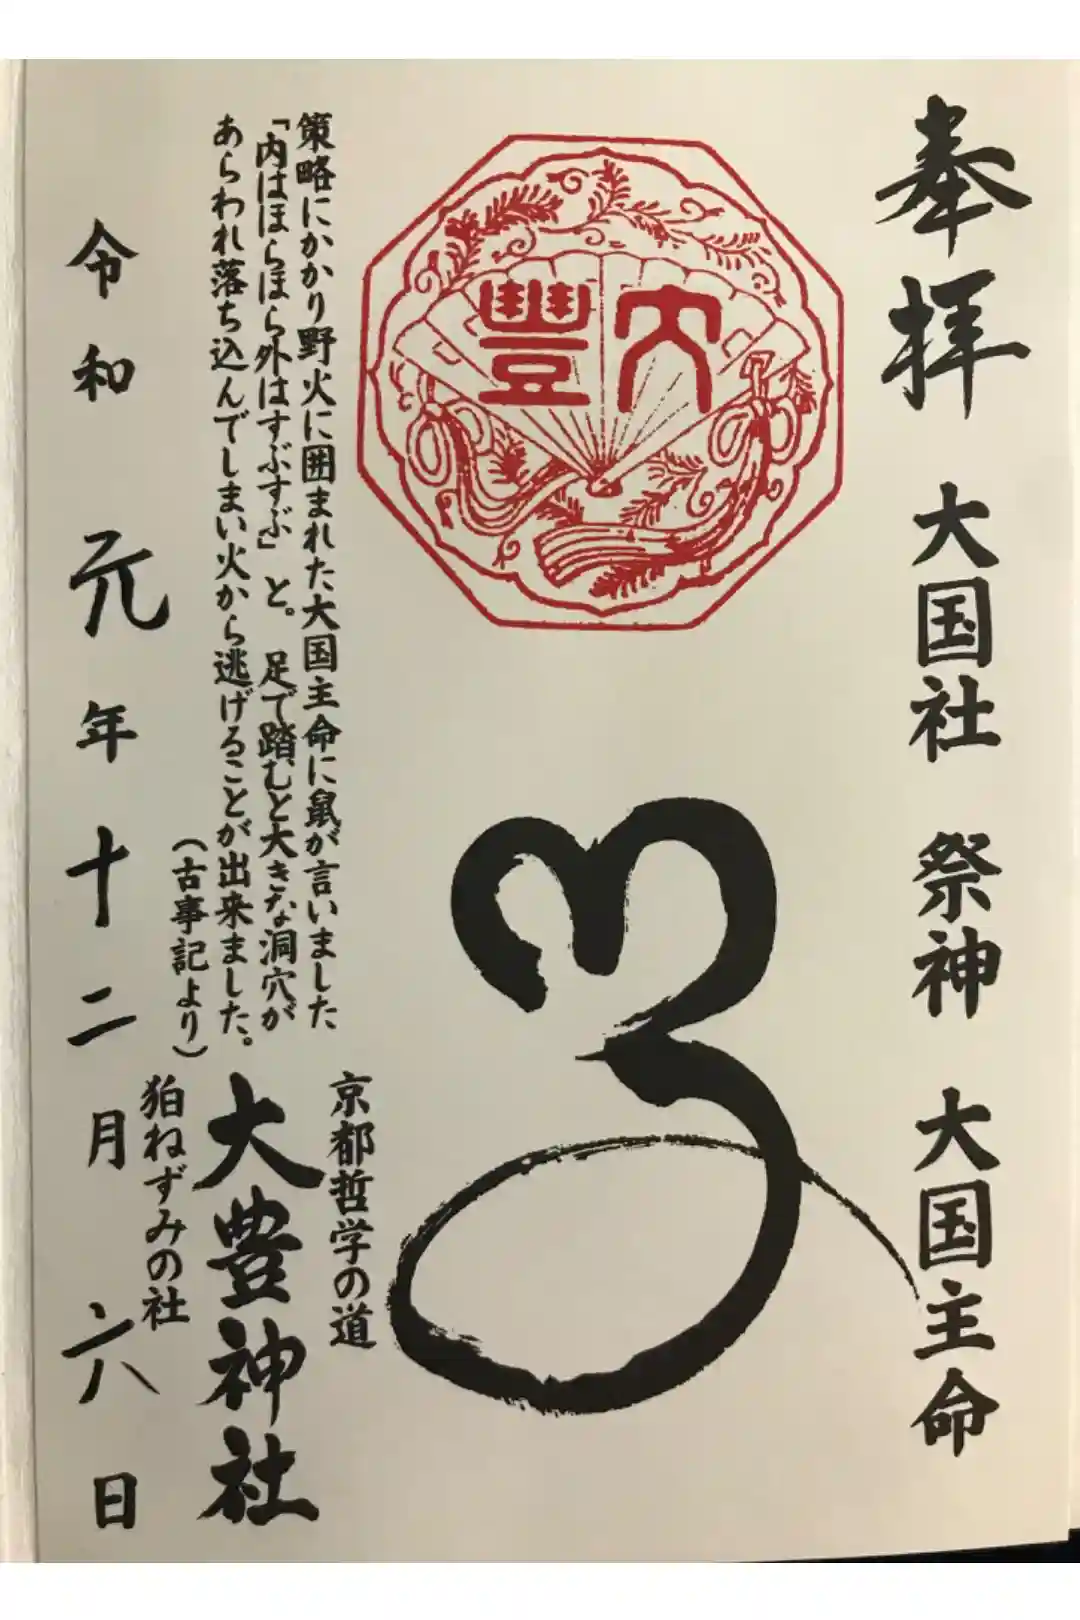 奉拝
大国社 祭神 大国主命
大豊
策略にかかり野火に囲まれた大国主命に鼠が言いました
「内はほらほら外はすぶすぶ」と。 足で踏むと大きな洞穴が
あらわれ落ち込んでしまい火から逃げることが出来ました。
(古事記より)
京都哲学の道
大豊神社
狛ねずみの社
令和元年十二月六日